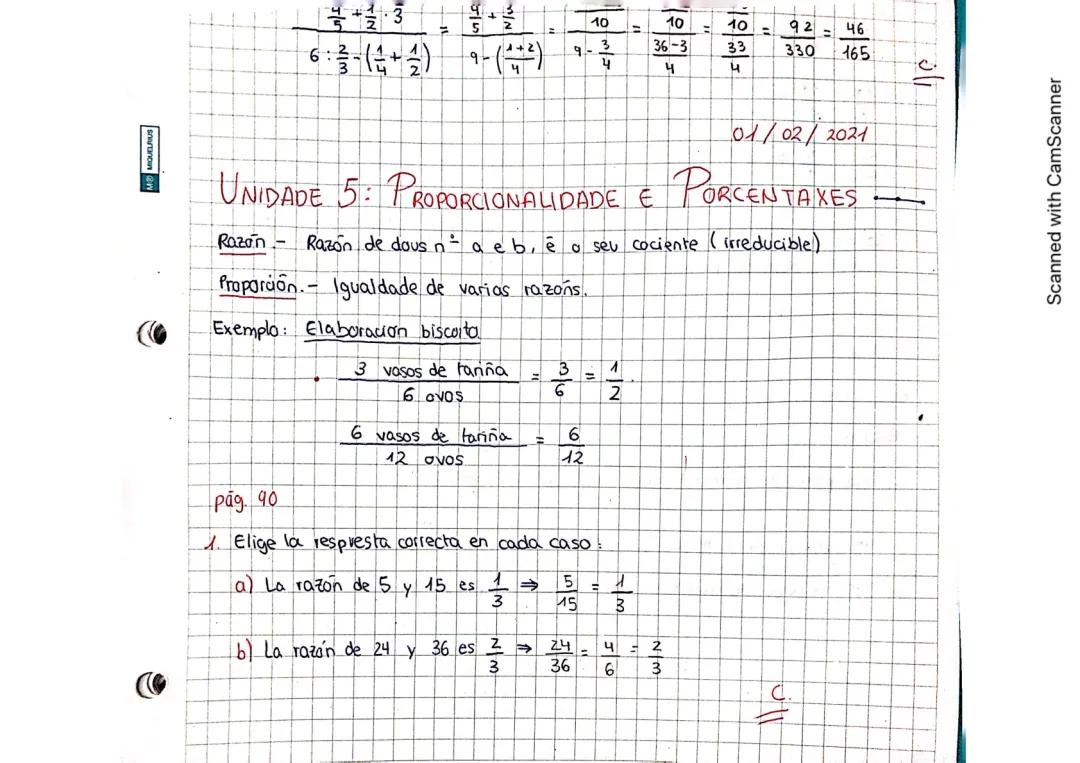 4/5 + 1/2 · 3 / 6 : 2/3 - (1/4 + 1/2) = 4/5 + 3/2 / 9 - (1+2/4) = /10 / 9 - 3/4 = /10 / 36-3/4 = /10 / 33/4 = 92/330 = 46/165
C.
01/02/2021
UNIDADE 5: PROPORCIONALIDADE E PORCENTAXES
Razón - Razón de dous nº a e b, é o seu cociente (irreducible)
Proporción.- Igualdade de varias razóns.
Exemplo: Elaboración biscoito
3 vasos de fariña / 6 ovos = 3/6 = 1/2.
6 vasos de fariña / 12 ovos = 6/12
pág. 90
1. Elige la respuesta correcta en cada caso:
a) La razón de 5 y 15 es 1/3 ⇒ 5/15 = 1/3
b) La razón de 24 y 36 es 2/3 ⇒ 24/36 = 4/6 = 2/3
C.
MIQUELRIUS
Scanned with CamScanner